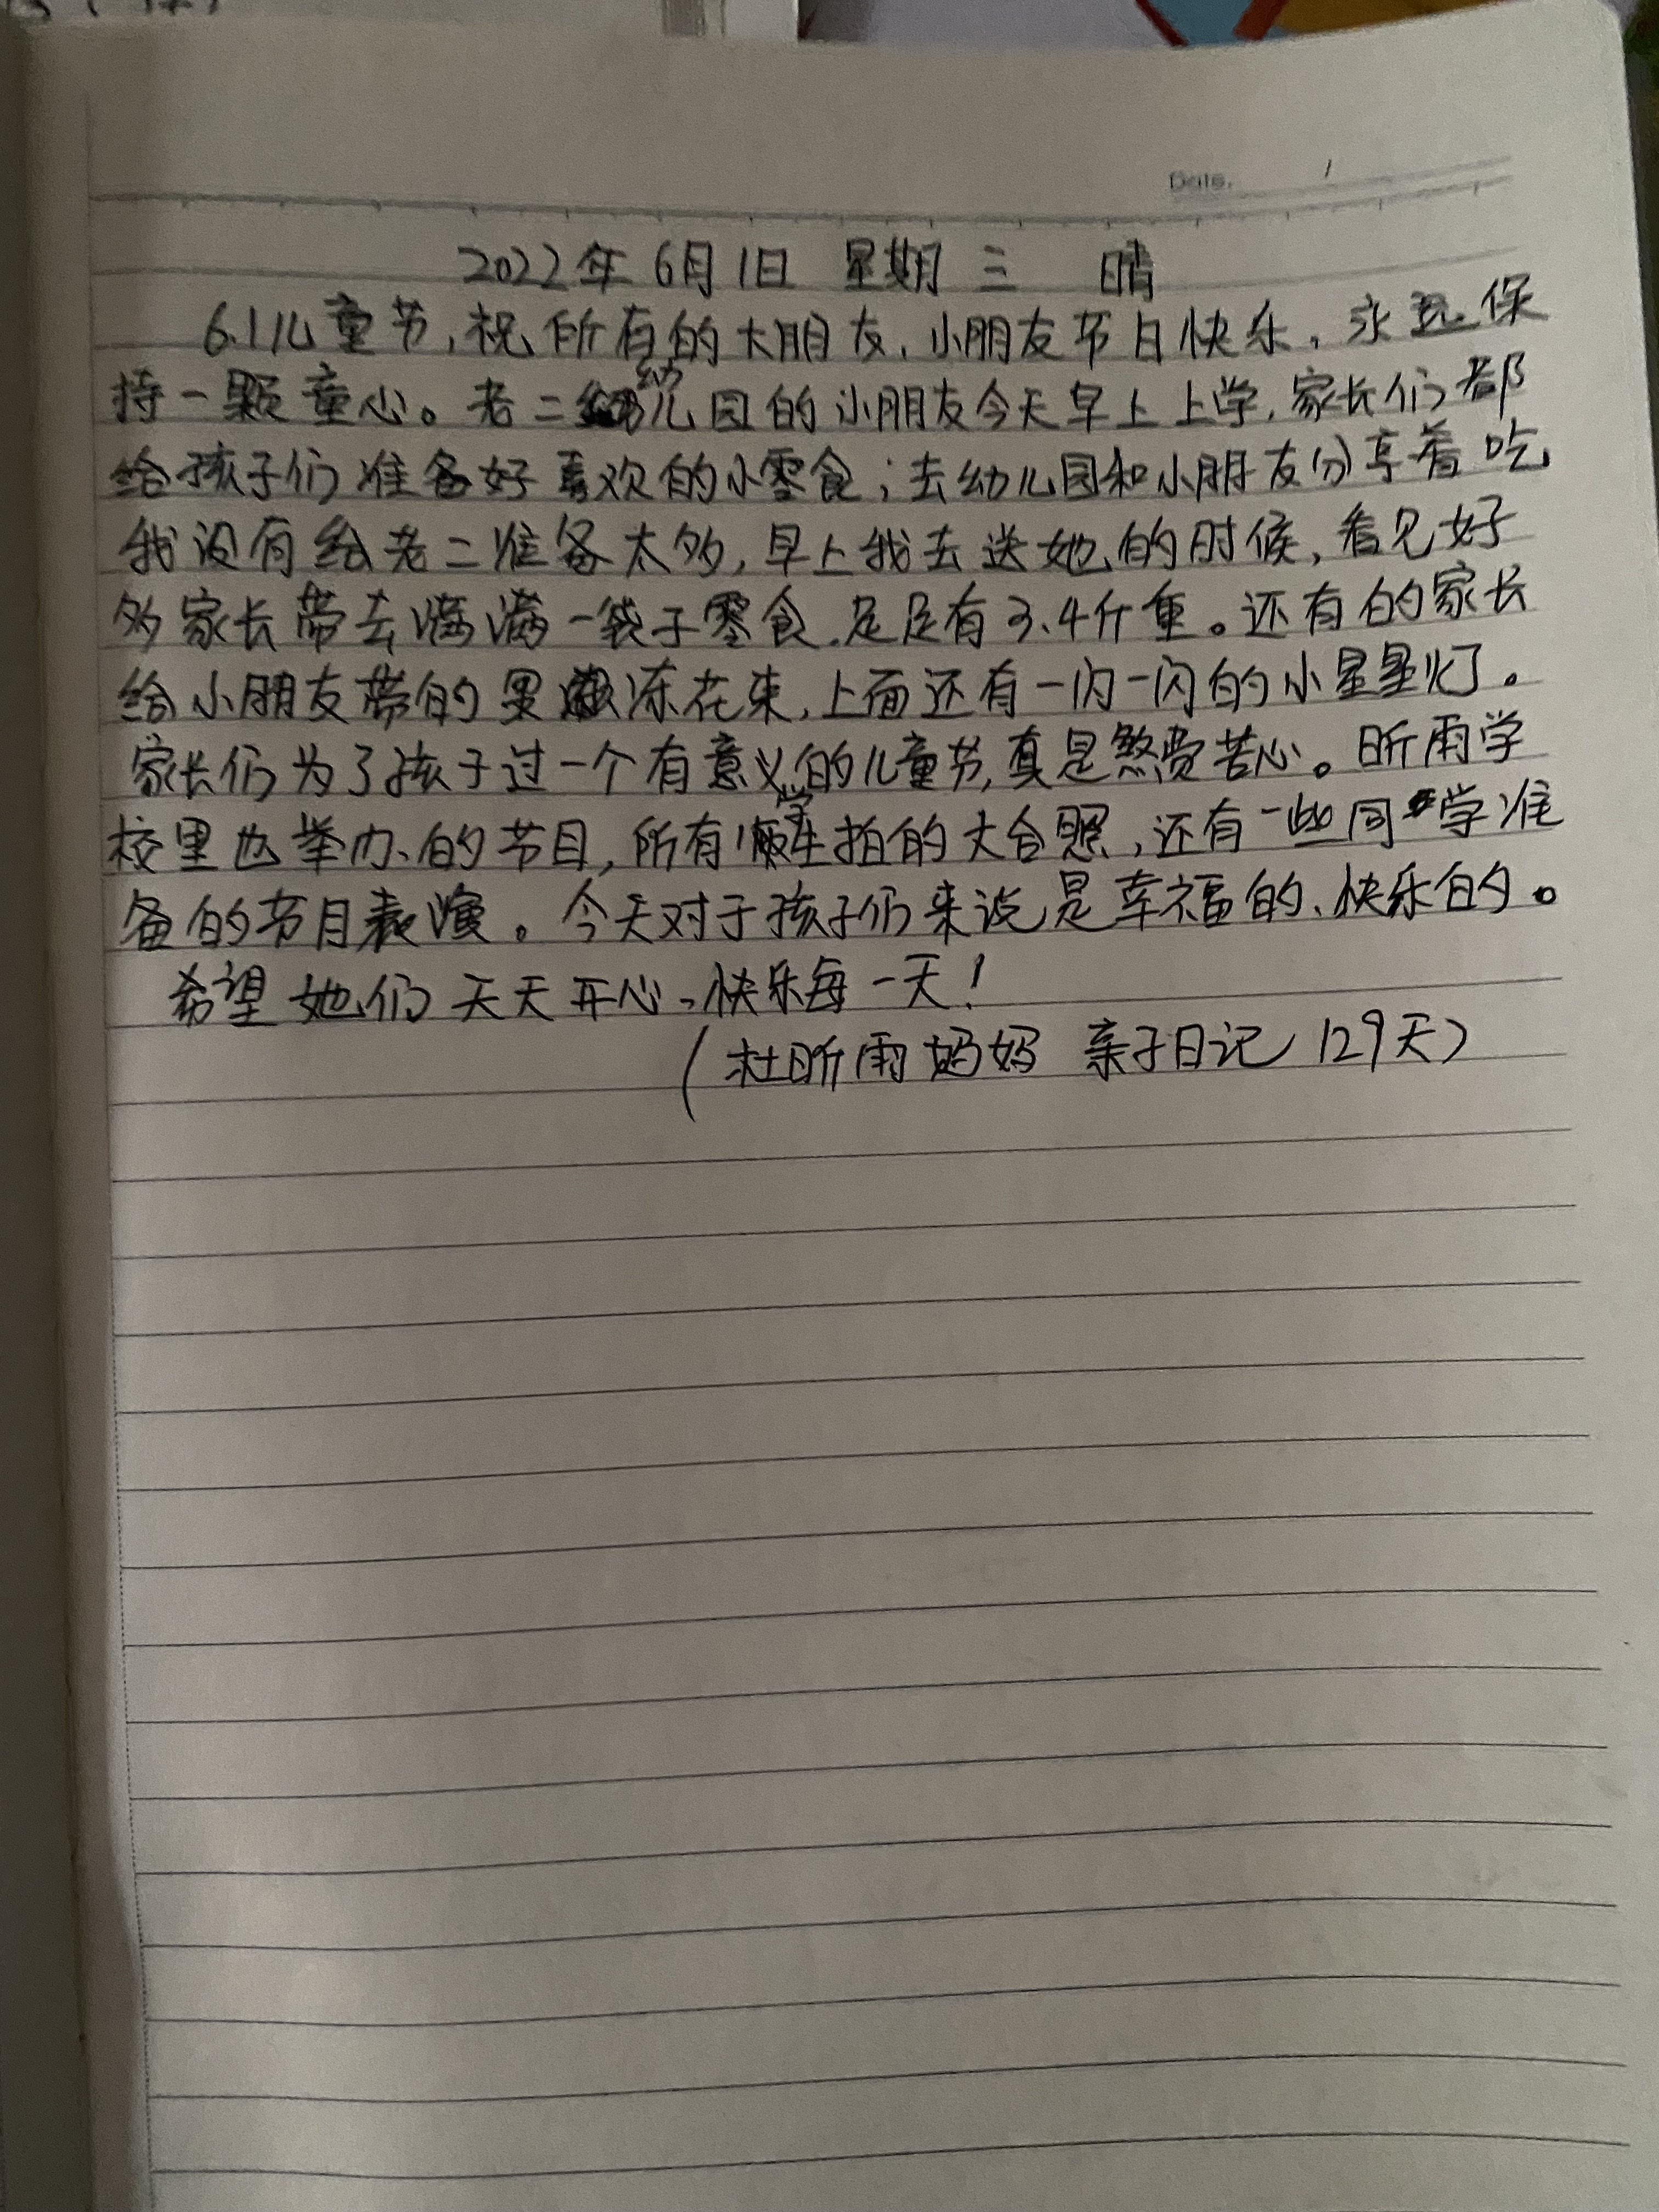 Date. /
2022年6月1日 星期三 晴
6.1儿童节,祝所有的大朋友、小朋友节日快乐,永远保
持一颗童心。老二幼儿园的小朋友今天早上上学,家长们都
给孩子们准备好喜欢的小零食;去幼儿园和小朋友分享着吃
我没有给老二准备太多,早上我去送她的时候,看见好
多家长带去满满一袋子零食.足足有3、4斤重。还有的家长
给小朋友带的果冻花束,上面还有一闪一闪的小星星灯。
家长们为了孩子过一个有意义的儿童节,真是煞费苦心。昕雨学
校里也举办的节目,所有学生拍的大合照,还有一些同学准
备的节目表演。今天对于孩子们来说是幸福的、快乐的。
希望她们天天开心、快乐每一天!
(杜昕雨妈妈 亲子日记 129天)